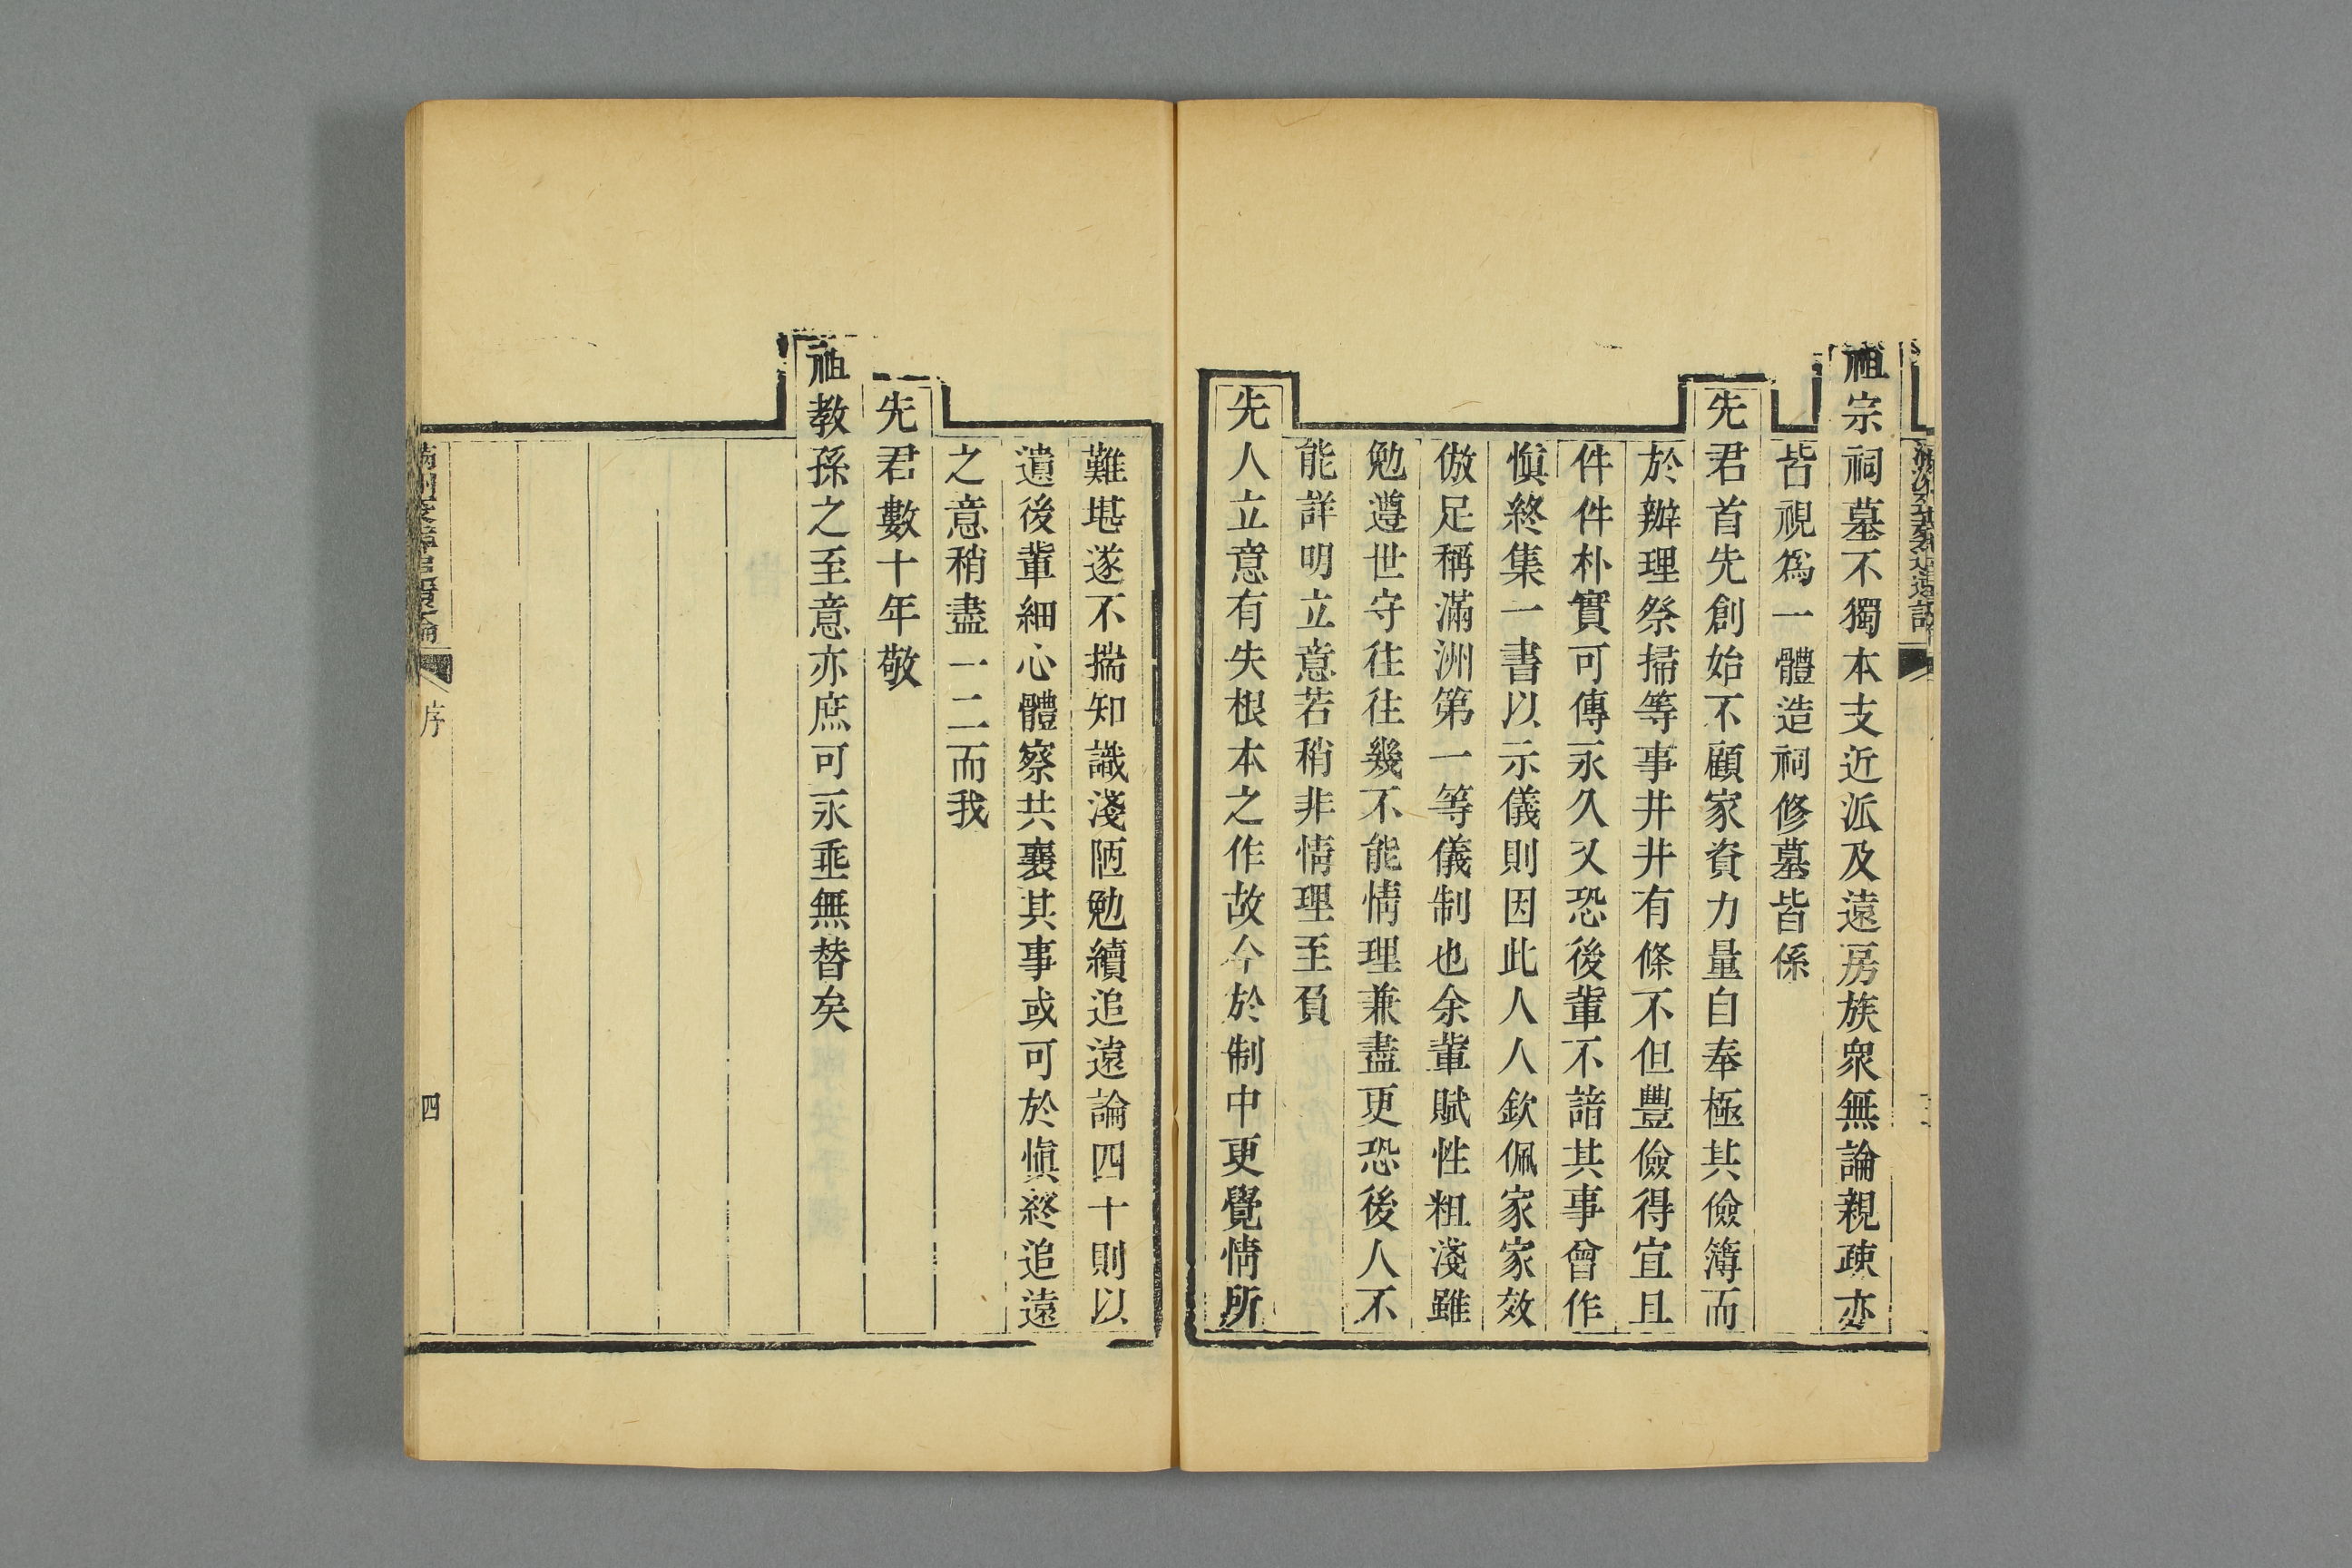 祖宗祠墓不獨本支近派及遠房族衆無論親疎亦
皆視爲一體造祠修墓皆係
先君首先創始不顧家資力量自奉極其儉簿而
於辦理祭掃等事井井有條不但豐儉得宜且
件件朴實可傳永久又恐後輩不諳其事曾作
愼終集一書以示儀則因此人人欽佩家家效
倣足稱滿洲第一等儀制也余輩賦性粗淺雖
勉遵世守往往幾不能情理兼盡更恐後人不
能詳明立意若稍非情理至負
先人立意有失根本之作故今於制中更覺情所
難堪遂不揣知識淺陋勉續追遠論四十則以
遺後輩細心體察共襄其事或可於愼終追遠
之意稍盡一二而我
先君數十年敬
祖教孫之至意亦庶可永垂無替矣
序
四